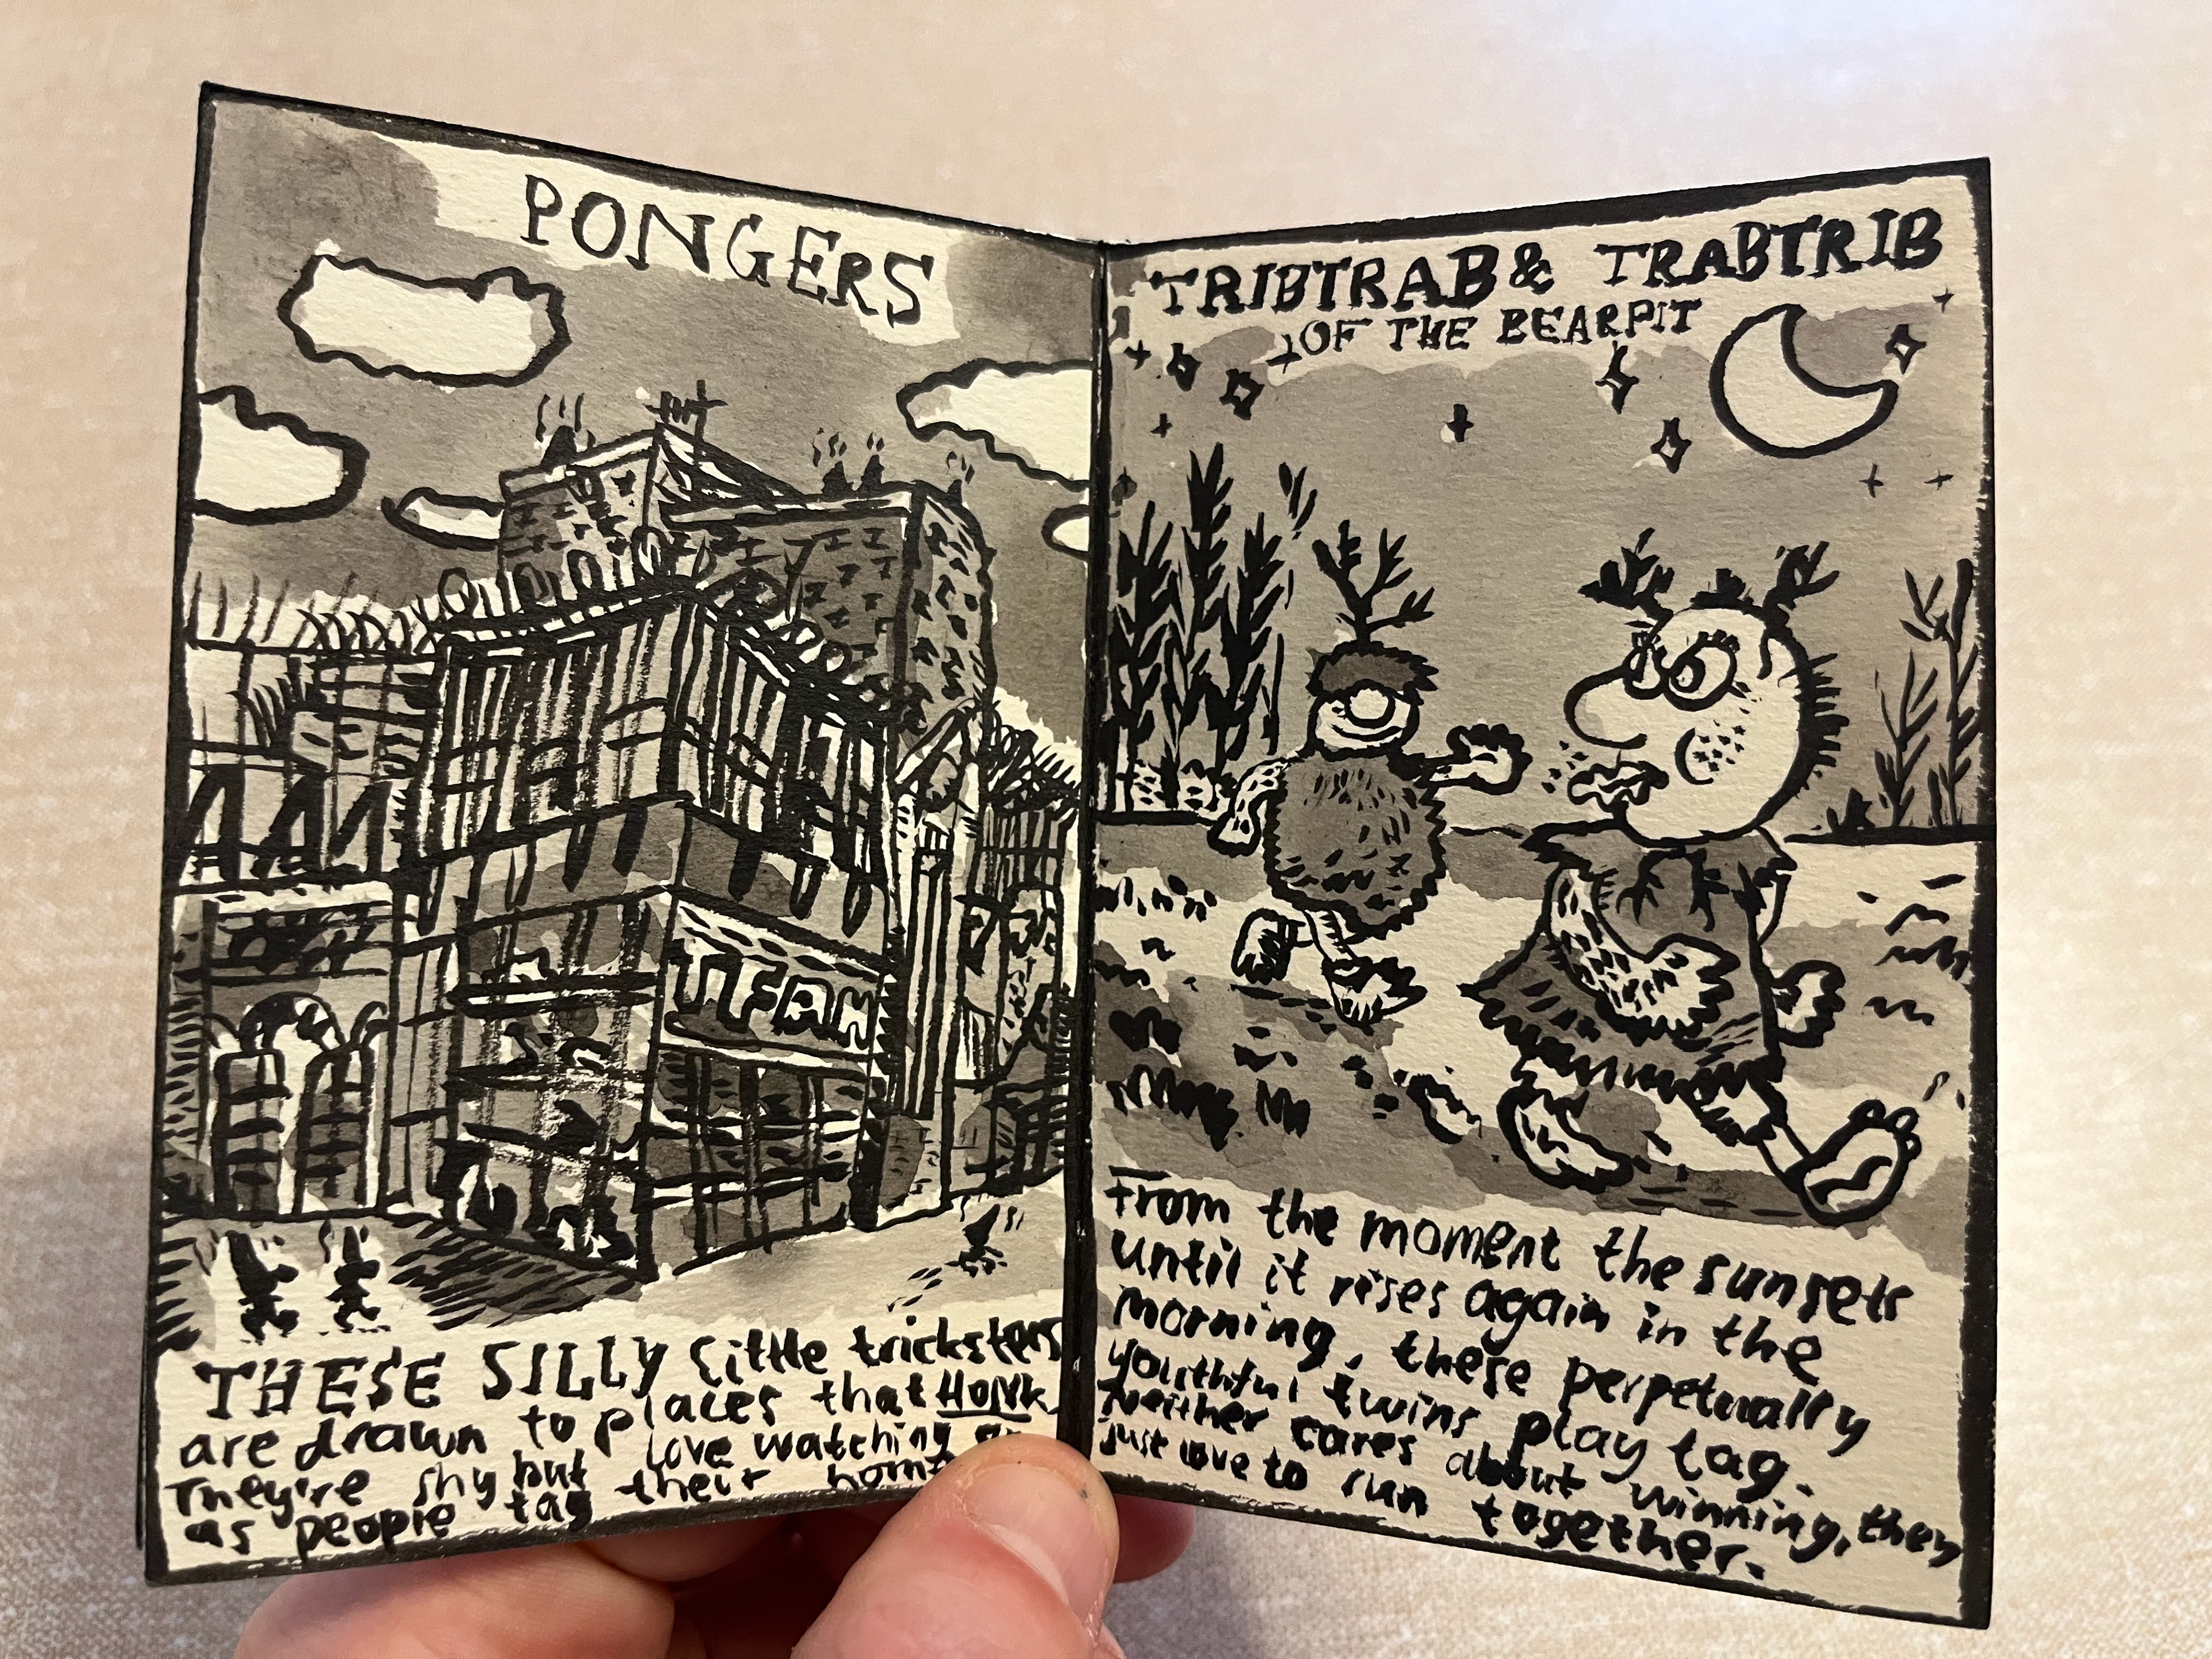 PONGERS
THESE SILLY little tricksters
are drawn to places that HONK.
They're shy but love watching
as people tag their home
TRIBTRAB & TRABTRIB
OF THE BEARPIT
From the moment the sunsets
until it rises again in the
morning, these perpetually
youthful twins play tag.
Neither cares about winning, they
just love to run together.